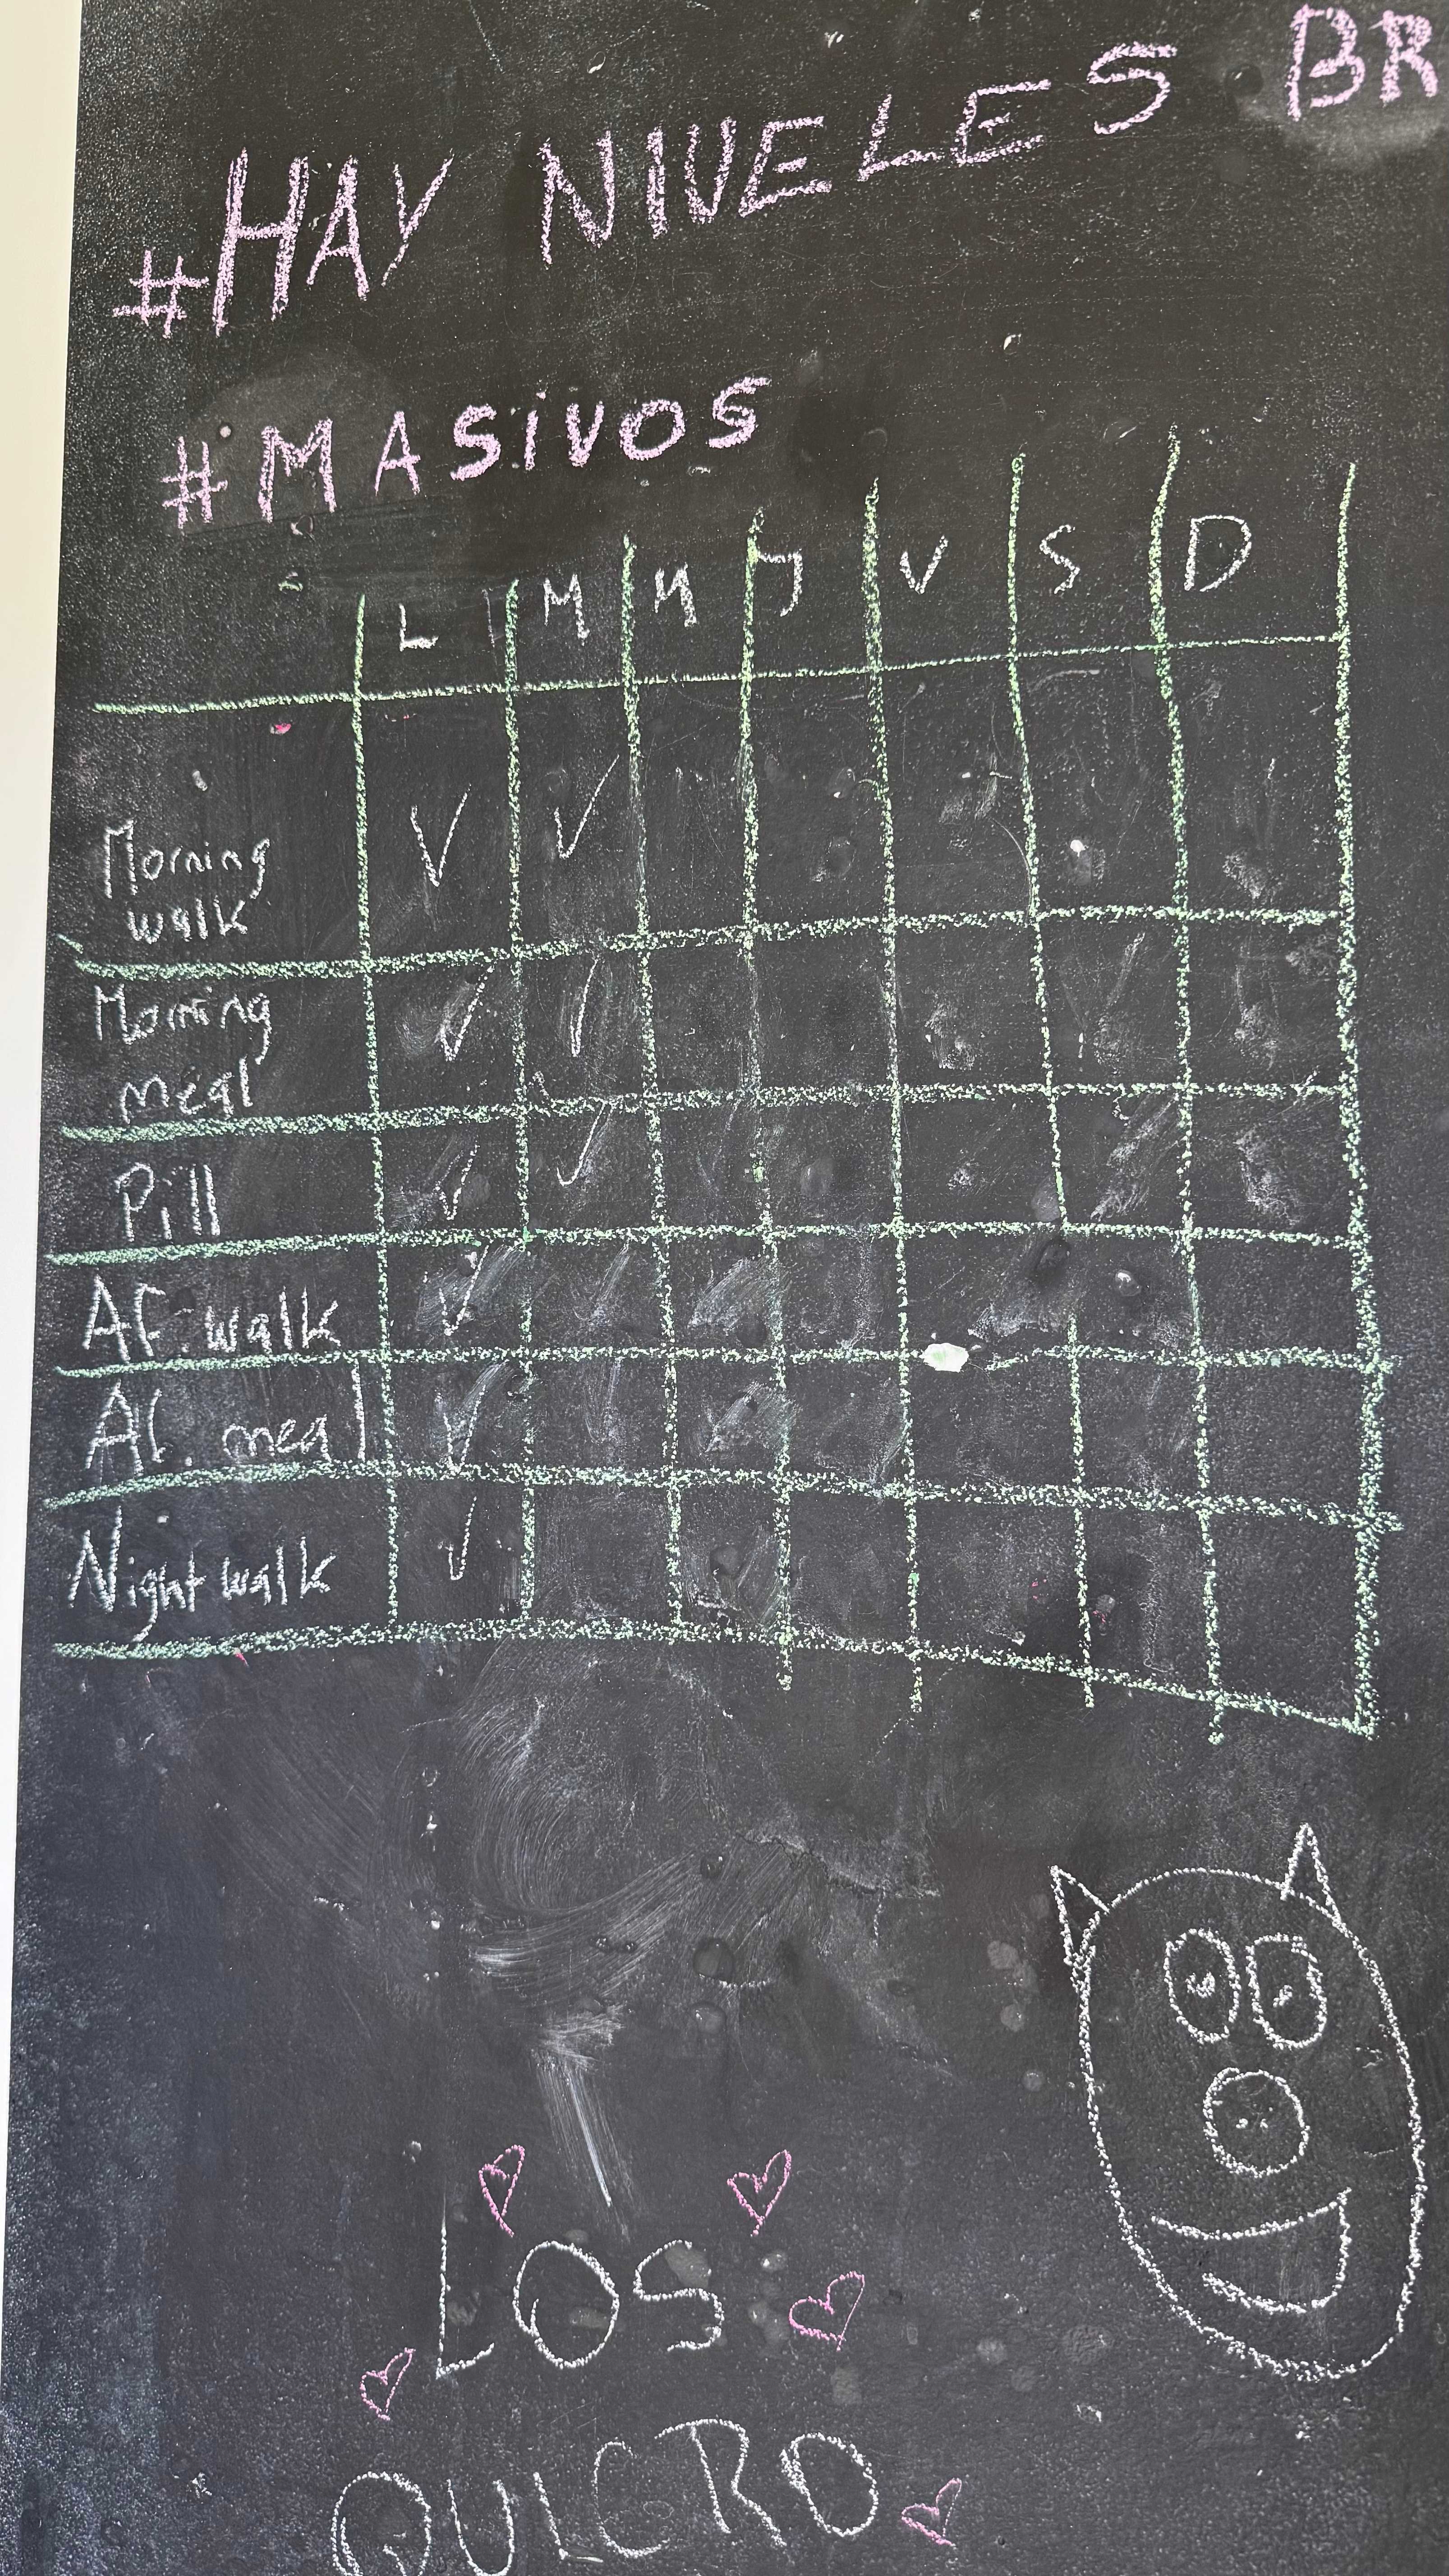 #HAY NIVELES BR
#MASIVOS
L M M J V S D
Morning walk
Morning meal
Pill
Af. walk
Af. meal
Night walk
LOS
QUIERO